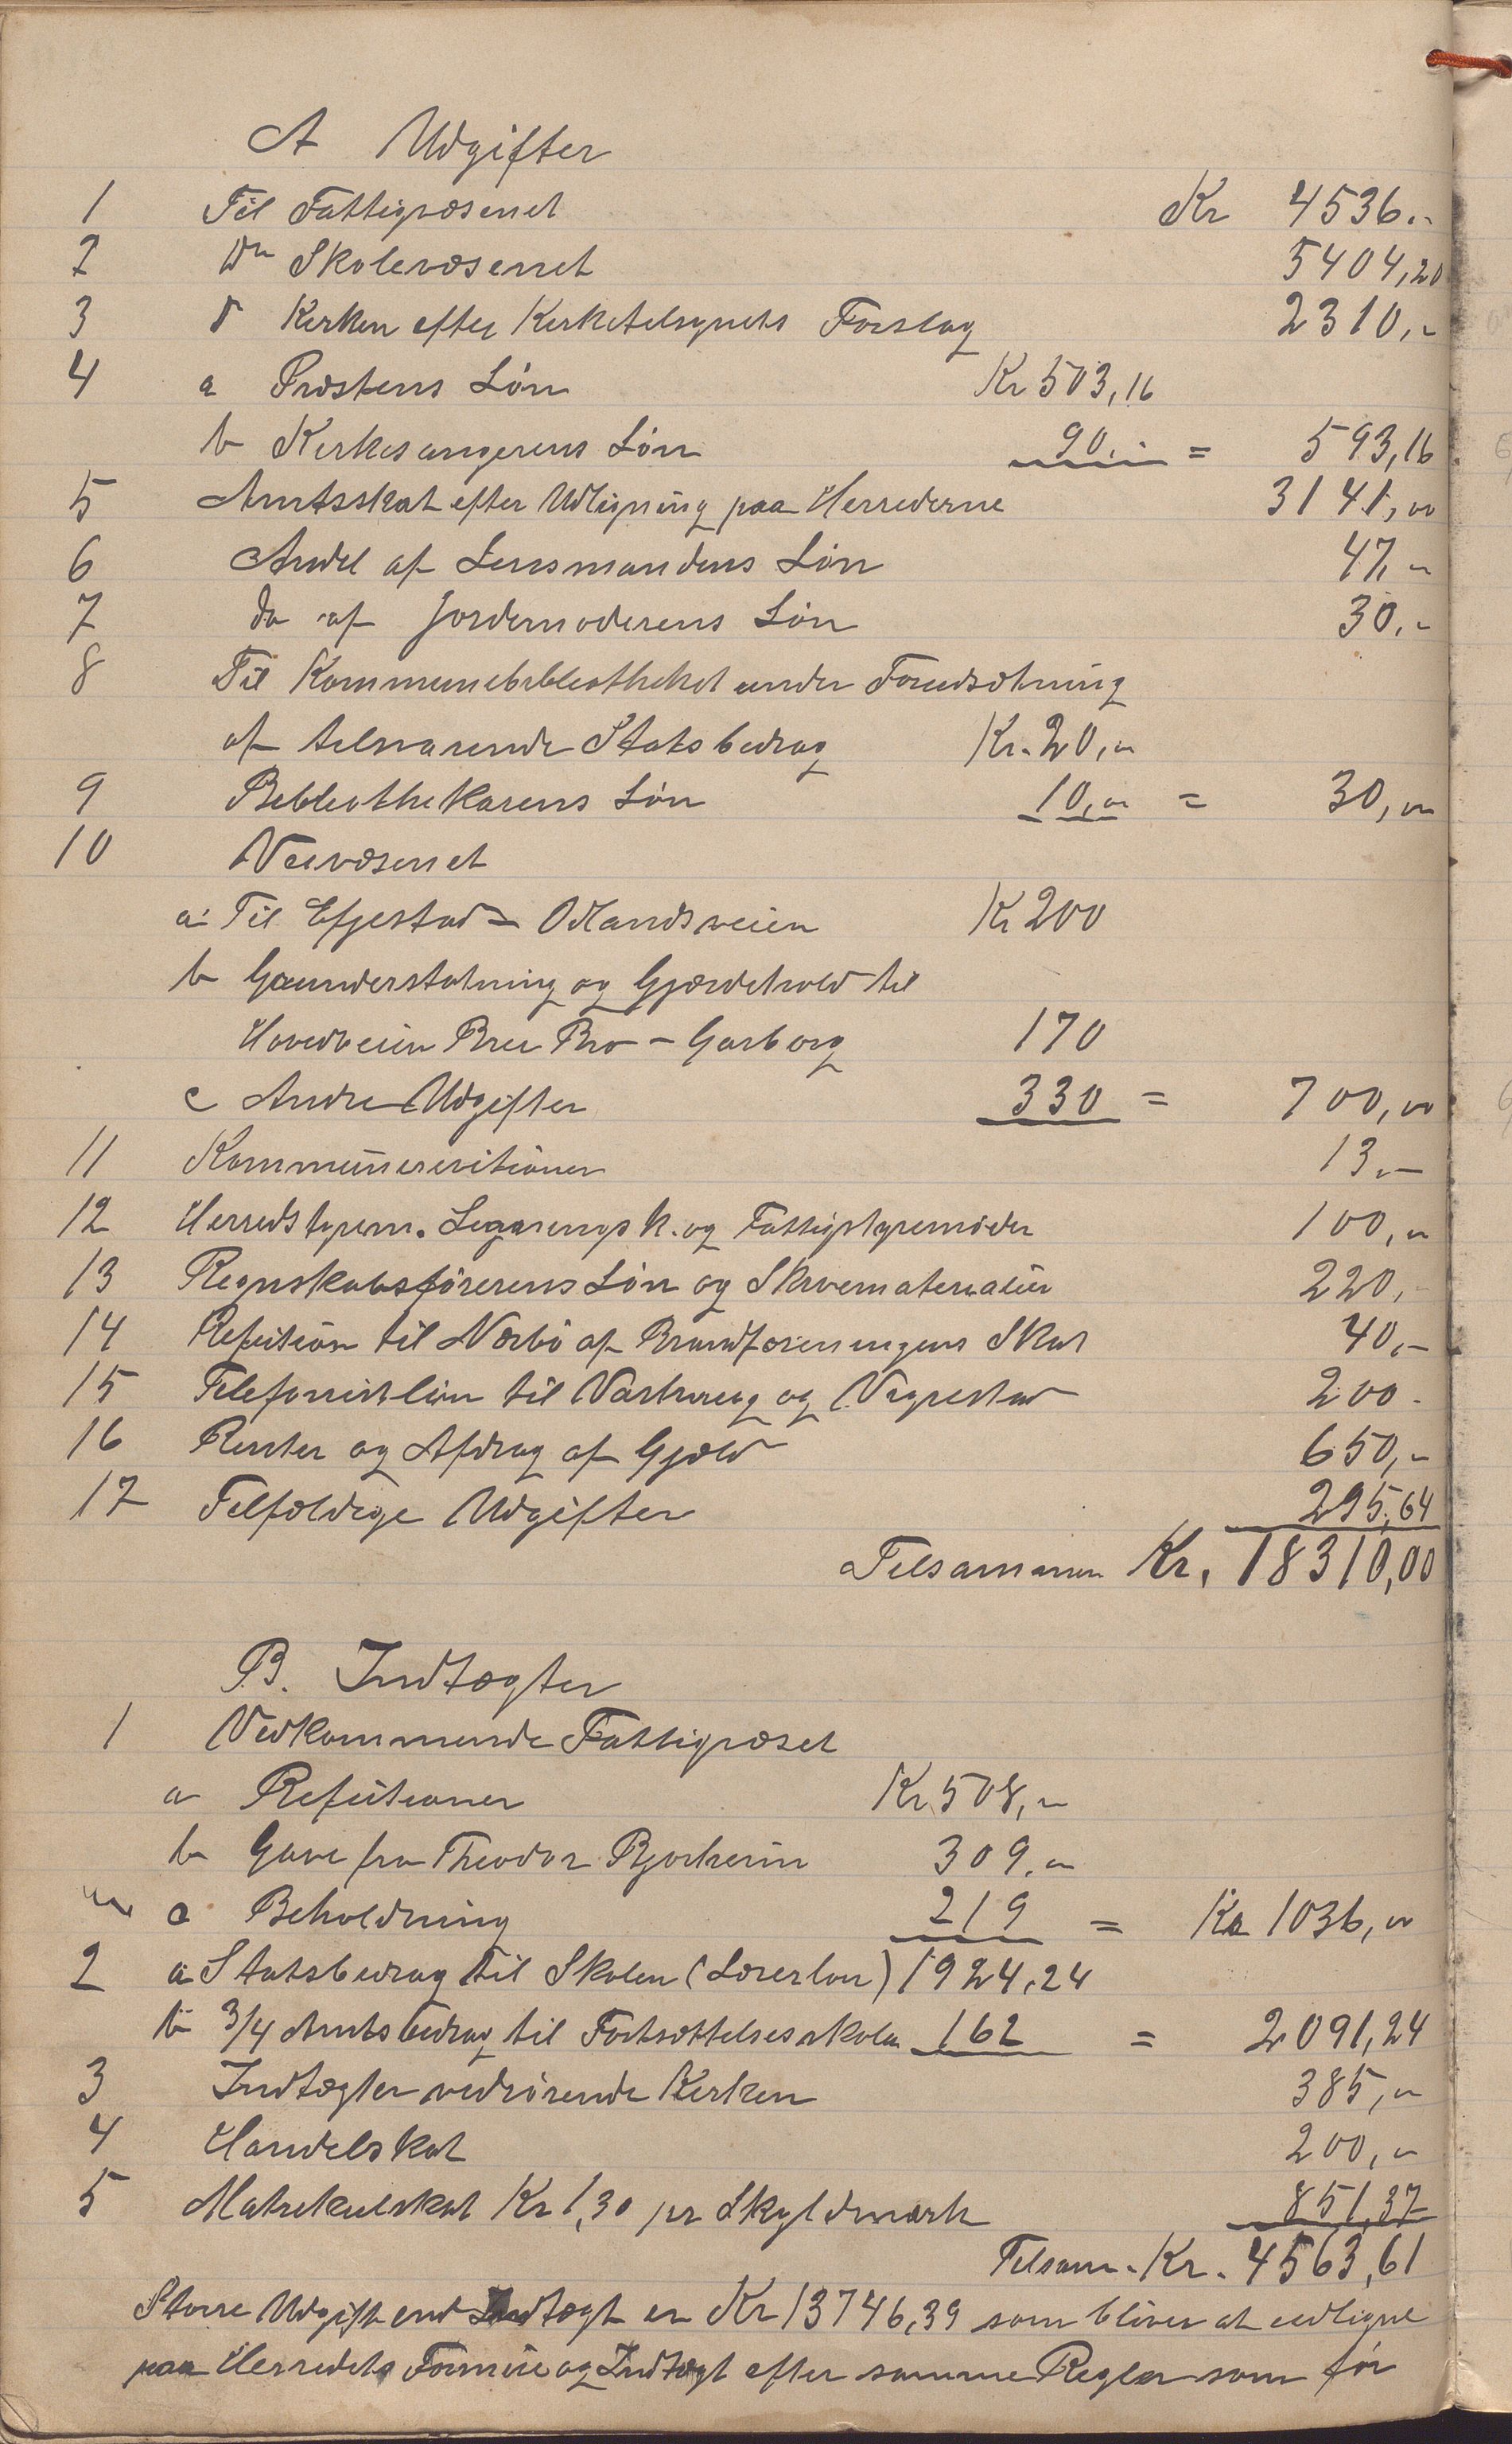 A Udgifter
1 Til Fattigvæsenet Kr 4536.-
2 Do Skolevæsenet 5404,20
3 d Kirken efter Kirketilsynets Forslag 2310,-
4 a Præstens Løn Kr 503,16
b Kirkesangerens Løn 90.- = 593,16
5 Amtsskat efter Udligning paa Herrederne 3141,00
6 Andel af Lensmandens Løn 47,-
7 do af Jordemoderens Løn 30.-
8 Til Kommunebibliotheket under Forudsætning
af tilsvarende Statsbidrag Kr. 20,-
9 Bibliothekarens Løn 10,- = 30,00
10 Veivæsenet
a Til Efjestad - Odlandsveien Kr 200
b Grunderstatning og Gjærdehold til
Hovedveien Bru Bro - Garborg 170
c Andre Udgifter 330 = 700,00
11 Kommunerevitionen 13.-
12 Herredstyrem. Legningsk. og Fattigstyremøder 100,-
13 Regnskabsførerens Løn og Skrivematerialier 220,-
14 Refution til Nærbø af Brandforeningens Skat 40,-
15 Telefonistløn til Varhaug og Vigrestad 200.
16 Renter og Afdrag af Gjæld 650,-
17 Tilfældige Udgifter 295,64
Tilsammen Kr. 18310,00
B. Indtægter
1 Vedkommende Fattigvæset
a Refutioner Kr 508,-
b Gave fra Theodor Bjorheim 309.-
c Beholdning 219 = Kr 1036,00
2 a Statsbidrag til Skolen (Lærerløn) 1924,24
b 3/4 Amtsbidrag til Fortsættelsesskolen 162 = 2091,24
3 Indtægter vedrørende Kirken 385,-
4 Handelskat 200,-
5 Matrikulskat Kr 1,30 pr Skyldmark 851,37
Tilsam. Kr. 4563,61
Større Udgift end Indtægt er Kr 13746,39 som bliver at udligne
paa Herredets Formue og Indtægt efter samme Regler som før